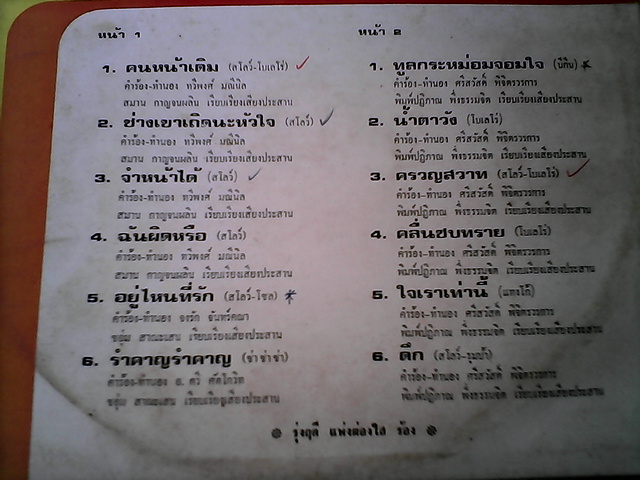 หน้า 1
1. คนหน้าเดิม (สโลว์-โบเลโร่)
คำร้อง-ทำนอง ทวีพงศ์ มณีนิล
สมาน กาญจนผลิน เรียบเรียงเสียงประสาน
2. ช่างเขาเถิดนะหัวใจ (สโลว์)
คำร้อง-ทำนอง ทวีพงศ์ มณีนิล
สมาน กาญจนผลิน เรียบเรียงเสียงประสาน
3. จำหน้าได้ (สโลว์)
คำร้อง-ทำนอง ทวีพงศ์ มณีนิล
สมาน กาญจนผลิน เรียบเรียงเสียงประสาน
4. ฉันผิดหรือ (สโลว์)
คำร้อง-ทำนอง ทวีพงศ์ มณีนิล
สมาน กาญจนผลิน เรียบเรียงเสียงประสาน
5. อยู่ไหนที่รัก (สโลว์-โซล)
คำร้อง-ทำนอง จงรัก จันทร์คณา
เรียบเรียงเสียงประสาน
6. รำคาญรำคาญ (ช่า ช่า ช่า)
คำร้อง-ทำนอง
เรียบเรียงเสียงประสาน
หน้า 2
1. ทูลกระหม่อมจอมใจ (บีกิน)
คำร้อง-ทำนอง ศรีสวัสดิ์ พิจิตรวรการ
พิมพ์ปฏิภาณ พึ่งธรรมจิต เรียบเรียงเสียงประสาน
2. น้ำตาวัง (โบเลโร่)
คำร้อง-ทำนอง ศรีสวัสดิ์ พิจิตรวรการ
พิมพ์ปฏิภาณ พึ่งธรรมจิต เรียบเรียงเสียงประสาน
3. ครวญสวาท (สโลว์-โบเลโร่)
คำร้อง-ทำนอง ศรีสวัสดิ์ พิจิตรวรการ
พิมพ์ปฏิภาณ พึ่งธรรมจิต เรียบเรียงเสียงประสาน
4. คลื่นซบทราย (โบเลโร่)
คำร้อง-ทำนอง ศรีสวัสดิ์ พิจิตรวรการ
พิมพ์ปฏิภาณ พึ่งธรรมจิต เรียบเรียงเสียงประสาน
5. ใจเราเท่านี้ (แทงโก้)
คำร้อง-ทำนอง ศรีสวัสดิ์ พิจิตรวรการ
พิมพ์ปฏิภาณ พึ่งธรรมจิต เรียบเรียงเสียงประสาน
6. ดึก (สโลว์-รุมบ้า)
คำร้อง-ทำนอง ศรีสวัสดิ์ พิจิตรวรการ
พิมพ์ปฏิภาณ พึ่งธรรมจิต เรียบเรียงเสียงประสาน
รุ่งฤดี แพ่งผ่องใส ร้อง